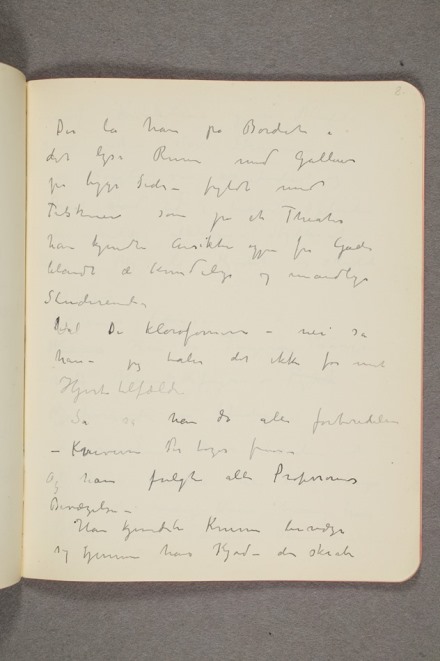 8
Der la han på Bordet i
det lyse Rum med Gallerier
på begge Sider – fyldt med
Tilskuere som på et Theater
han kjendte Ansikter oppe fra Gaden
blandt de kvindelige og mandlige
Studerende
De kloroformeres – nei sa
han – jeg tåler det ikke for mit
Hjerte tilfælde
Så så han da alle forberedelser
– Knivene Ble taget frem –
Og han fulgte alle Profesorens
Bevægelser –
Han kjendte Kniven bevæge
sig gjennem hans Kjød – den skrabe